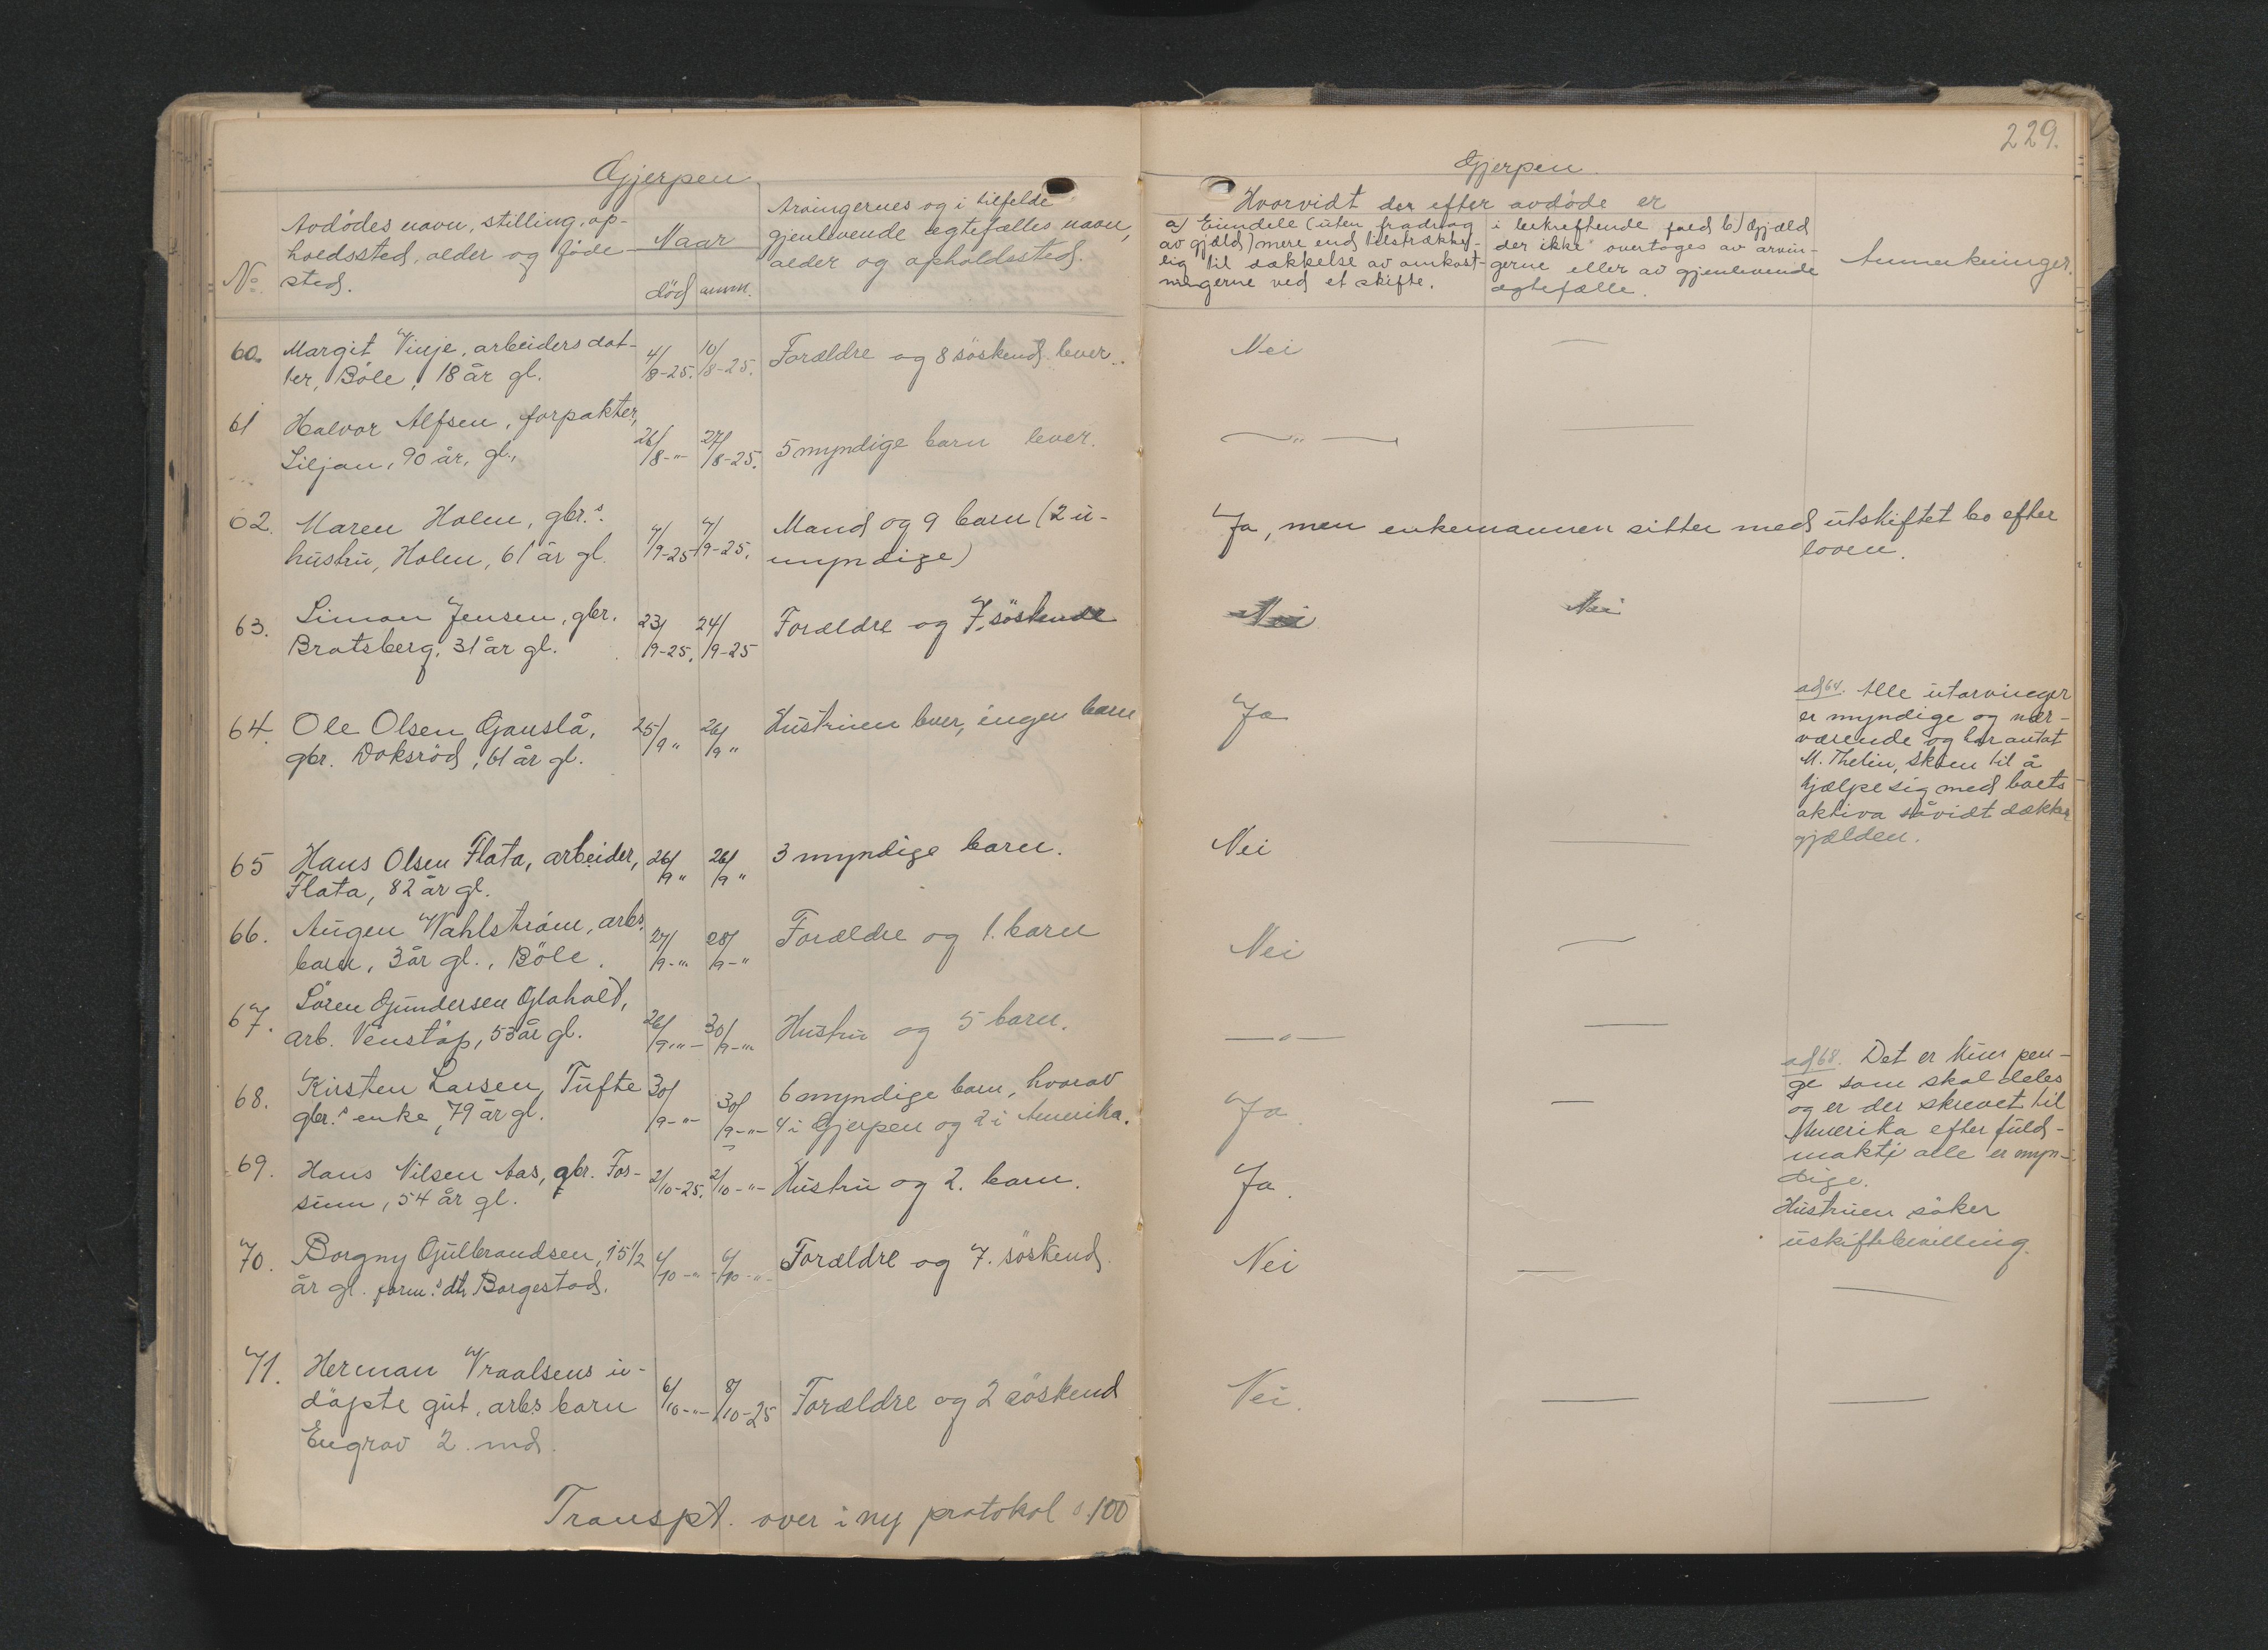 Gjerpen
Gjerpen
229.
No
Avdödes navn, stilling, op-
holdssted, alder og föde-
sted.
Naar
död anm.
Arvingernes og i tilfelde
gjenlevende egtefælles navn,
alder og opholdssted.
Hvorvidt der efter avdöde er
a) Eiendele (uten fradrag
av gjæld) mere end tilstrække-
lig til dækkelse av omkost-
ningerne ved et skifte.
i bekreftende fald b) Gjæld
der ikke overtages av arvin-
gerne eller av gjenlevende
egtefælle.
Anmerkninger.
60. Margit Vinje, arbeidersdat-
ter, Böle, 18 år gl.
4/8-25. 10/8-25.
Forældre og 8 söskend lever.
Nei —
61 Halvor Alfsen, forpakter,
Liljan, 90 år, gl.,
26/8-"- 27/8-25.
5 myndige barn lever.
—"— —
62. Maren Holm, gbr.s
hustru, Holm, 61 år gl.
7/9-25 7/9-25.
Mand og 9 barn (2 u-
myndige)
Ja, men enkemannen sitter med utskiftet bo efter
loven.
63. Simon Jensen, gbr.
Bratsberg, 31 år gl.
23/9-25. 24/9-25
Forældre og 7 söskende
Nei Nei
64. Ole Olsen Gauslå,
gbr. Doksröd, 61 år gl.
25/9 " 26/9 "
Hustruen lever, ingen barn
Ja
ad 64. Alle utarvinger
er myndige og nær-
værende og har antat
M. Thelin, Skien til å
hjælpe sig med boets
aktiva såvidt dækker
gjælden.
65 Hans Olsen Flata, arbeider,
Flata, 82 år gl.
26/9 " 26/9 "
3 myndige barn.
Nei —
66. Augen Wahlström, arbs.
barn, 3 år gl., Böle.
27/9-"- 28/9-"
Forældre og 1. barn
Nei —
67. Sören Gundersen Glaholt,
arb. Venstöp, 53 år gl.
26/9-"- 30/9-"-
Hustru og 5 barn.
—"— —
68. Kirsten Larsen, Tufte
gbr.s enke, 79 år gl.
30/9-"- 30/9-"-
6 myndige barn, hvorav
4 i Gjerpen og 2 i Amerika.
Ja —
ad 68. Det er kun pen-
ge som skal deles
og er der skrevet til
Amerika efter fuld-
makt; alle er myn-
dige.
69. Hans Nilsen Aas, gbr. Fos-
sum, 54 år gl.
2/10-25. 2/10-"-
Hustru og 2. barn.
Ja.
Hustruen söker
uskiftebevilling.
70. Borgny Gulbrandsen, 15 1/2
år gl. form.s dtr. Borgestad.
4/10-"- 6/10-"-
Forældre og 7. söskend.
Nei — —
71. Herman Vraalsens u-
döpte gut, arbs. barn
Engrav 2. md.
6/10-"- 8/10-25
Forældre og 2 söskend
Nei. — —
Transpt. over i ny protokol s. 100